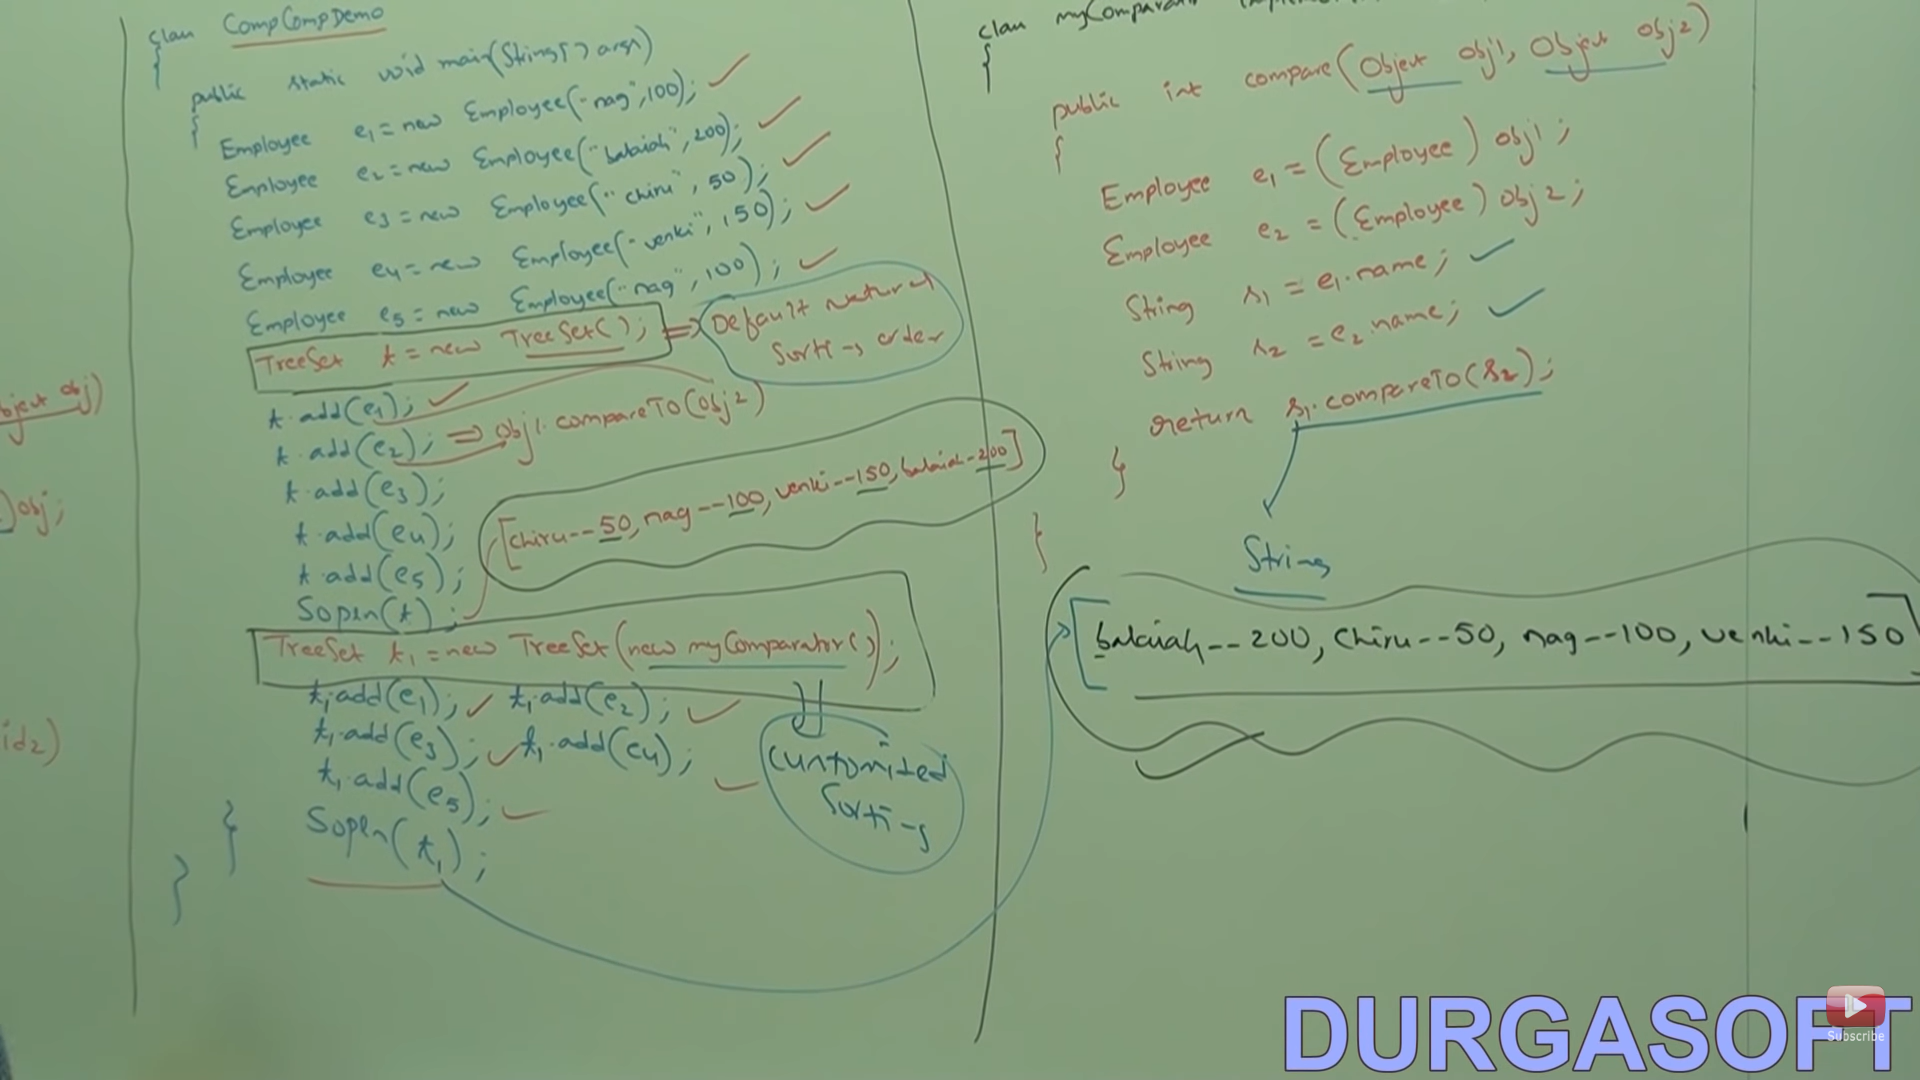 bject obj)
)obj;
id2)
class CompCompDemo
{
public static void main(String[] args)
{
Employee e1=new Employee("nag",100);
Employee e2=new Employee("balaiah",200);
Employee e3=new Employee("chiru",50);
Employee e4=new Employee("venki",150);
Employee e5=new Employee("nag",100);
TreeSet t=new TreeSet(); => Default natural
sorting order
t.add(e1);
t.add(e2); => obj1.compareTo(obj2)
t.add(e3);
t.add(e4);
t.add(e5);
[chiru--50, nag--100, venki--150, balaiah--200]
Sopln(t);
TreeSet t1=new TreeSet(new myComparator());
t1.add(e1); t1.add(e2);
t1.add(e3); t1.add(e4);
t1.add(e5);
Sopln(t1);
}
}
Customized
Sorting
class myComparator
{
public int compare(Object obj1, Object obj2)
{
Employee e1=(Employee)obj1;
Employee e2=(Employee)obj2;
String s1=e1.name;
String s2=e2.name;
return s1.compareTo(s2);
}
}
String
[balaiah--200, Chiru--50, nag--100, venki--150]
DURGASOFT
Subscribe